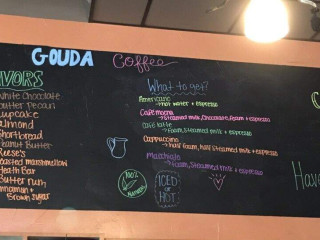 GOUDA Coffee
VORS
White Chocolate
utter Pecan
upcake
almond
Shortbread
Reese's
oasted marshmellow
eath Bar
Butter rum
innamon +
Brown Sugar
What to get?
Americano
→ Hot water + espresso
Cafe mocha
→ Steamed milk, Chocolate, foam + espresso
Café latte
→ foam, steamed milk + espresso
Cappuccino
→ half foam, half steamed milk + espresso
Macchiato
→ foam, steamed milk + espresso
ICED
or
HOT
C
Hav